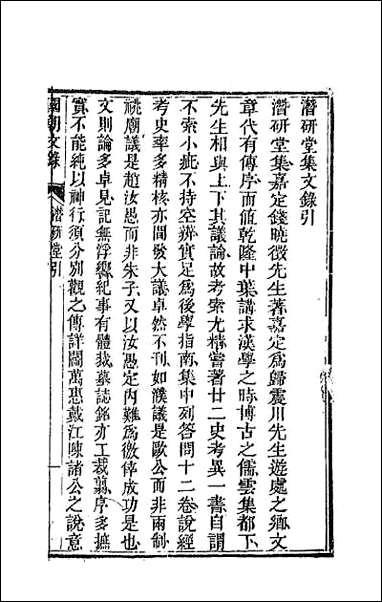 潛研堂集文錄引
潛研堂集嘉定錢曉徵先生著嘉定爲歸震川先生遊處之鄉文
章代有傳序而值乾隆中葉講求漢學之時博古之儒雲集都下
先生相與上下其議論故考索尤精嘗著廿二史考異一書自謂
不索小疵不持空辨實足爲後學指南集中列答問十二卷說經
考史率多精核亦間發大議卓然不刊如濮議是歐公而非兩制
祧廟議是趙汝愚而非朱子又以汝愚定內難爲徼倖成功是也
文則論多卓見記無浮響紀事有體裁墓誌銘亦工裁翦序多摭
實不能純以神行須分別觀之傳詳閻萬惠戴江陳諸公之說意
國朝文錄
潛研堂引